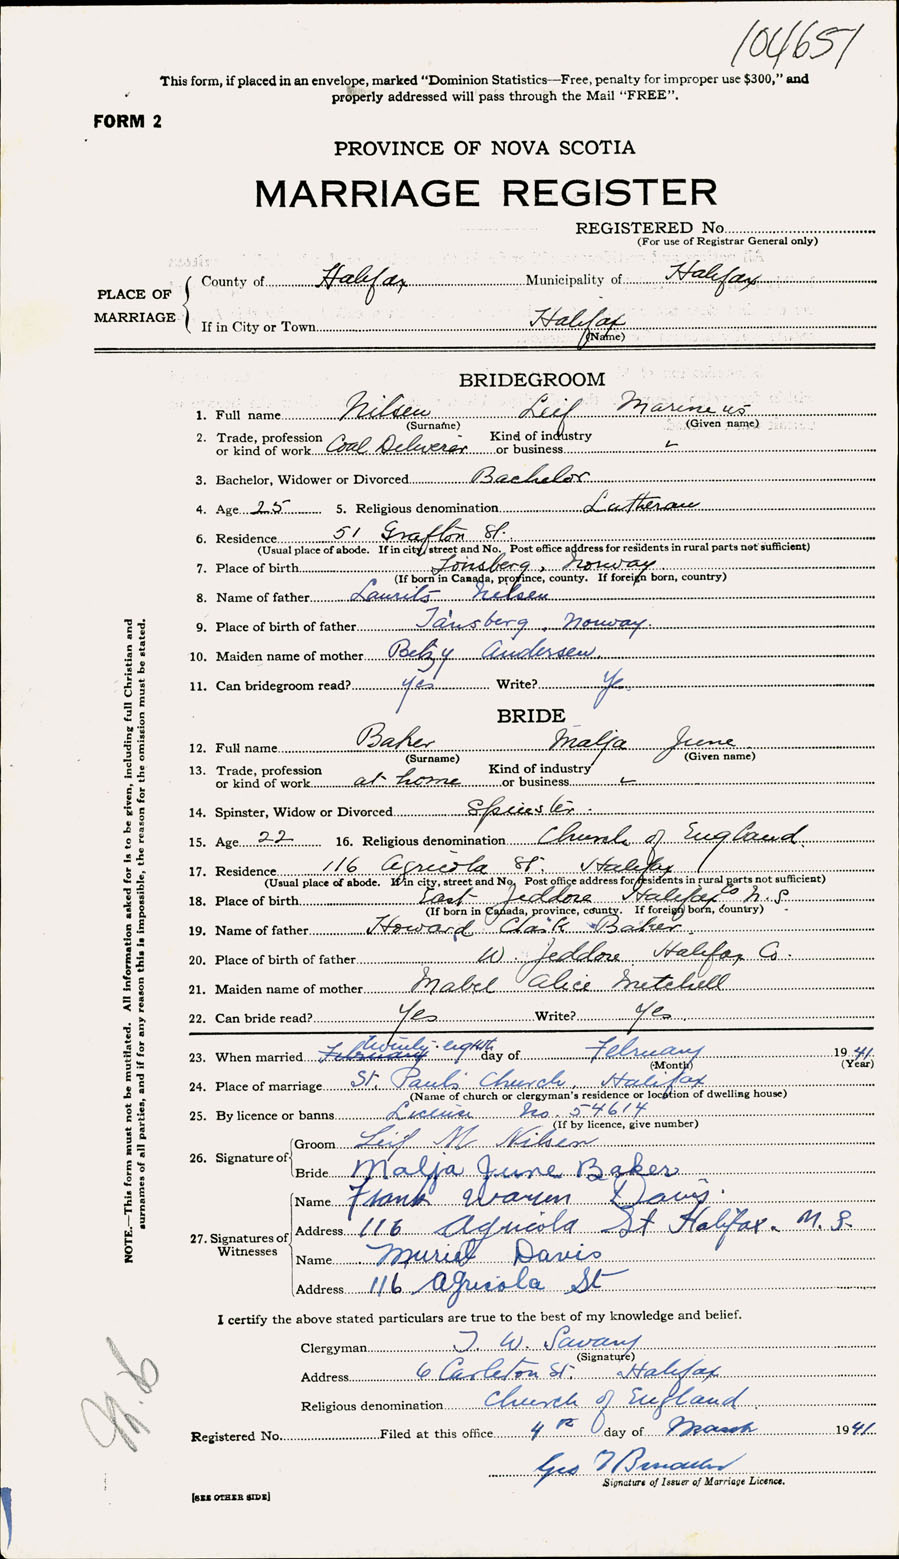 104651
This form, if placed in an envelope, marked "Dominion Statistics—Free, penalty for improper use $300," and
properly addressed will pass through the Mail "FREE".
FORM 2
PROVINCE OF NOVA SCOTIA
MARRIAGE REGISTER
REGISTERED No.
(For use of Registrar General only)
PLACE OF MARRIAGE
County of Halifax Municipality of Halifax
If in City or Town Halifax
(Name)
BRIDEGROOM
1. Full name Nilsen Leif Marineus
(Surname) (Given name)
2. Trade, profession or kind of work Coal Deliverer Kind of industry or business
3. Bachelor, Widower or Divorced Bachelor
4. Age 25 5. Religious denomination Lutheran
6. Residence 51 Grafton St.
(Usual place of abode. If in city, street and No. Post office address for residents in rural parts not sufficient)
7. Place of birth Tonsberg, Norway
(If born in Canada, province, county. If foreign born, country)
8. Name of father Laurits Nilsen
9. Place of birth of father Tansberg, Norway.
10. Maiden name of mother Betzy Andersen.
11. Can bridegroom read? yes Write? Yes
BRIDE
12. Full name Baker Malja June
(Surname) (Given name)
13. Trade, profession or kind of work at home Kind of industry or business
14. Spinster, Widow or Divorced Spinster
15. Age 22 16. Religious denomination Church of England
17. Residence 116 Agricola St. Halifax
(Usual place of abode. If in city, street and No. Post office address for residents in rural parts not sufficient)
18. Place of birth East Jeddore Halifax Co N.S
(If born in Canada, province, county. If foreign born, country)
19. Name of father Howard Clark Baker
20. Place of birth of father W. Jeddore Halifax Co.
21. Maiden name of mother Mabel Alice Mitchell
22. Can bride read? Yes Write? Yes
23. When married February twenty-eight day of February 1941
(Month) (Year)
24. Place of marriage St. Paul's Church, Halifax
(Name of church or clergyman's residence or location of dwelling house)
25. By licence or banns License No. 54614
(If by licence, give number)
26. Signature of
Groom Leif M Nilsen
Bride Malja June Baker
27. Signatures of Witnesses
Name Frank Warren Davis.
Address 116 Agricola St Halifax. N.S.
Name Muriel Davis
Address 116 Agricola St
I certify the above stated particulars are true to the best of my knowledge and belief.
Clergyman T. W. Savary
(Signature)
Address 6 Carleton St. Halifax
Religious denomination Church of England
Registered No. Filed at this office 4th day of March 1941
Geo
Signature of Issuer of Marriage Licence.
[SEE OTHER SIDE]
NOTE.—This form must not be mutilated. All information asked for is to be given, including full Christian and
surnames of all parties, and if for any reason this is impossible, the reason for the omission must be stated.